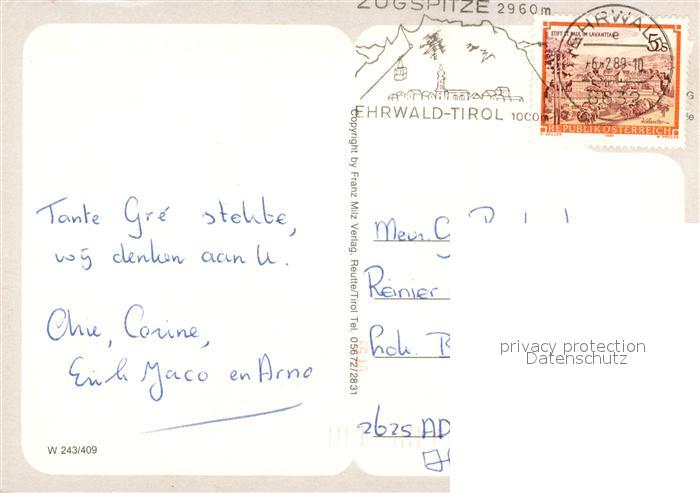 ZUGSPITZE 2960m
EHRWALD-TIROL 1000m
EHRWALD
6.12.89-10
STIFT ST. PAUL IM LAVANTTAL
5S
REPUBLIK ÖSTERREICH
Copyright by Franz Milz Verlag, Reutte/Tirol Tel. 05672/2831
Tante Gré
wij denken aan U.
Corine,
Erik Jaco en Arno
W 243/409
Mevr. G
Reinier
2625 AD
privacy protection
Datenschutz